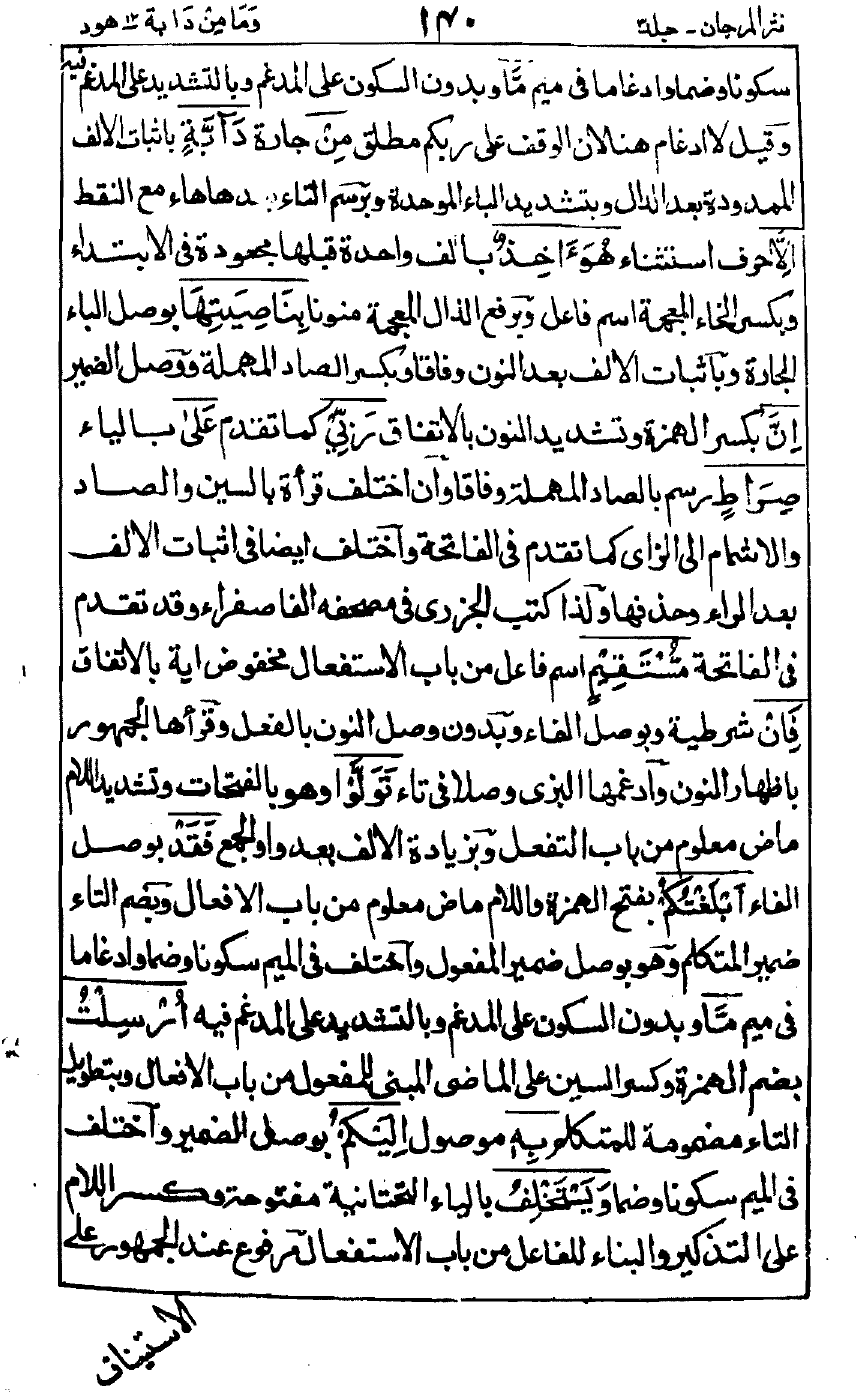 نثر المرجان - جلد ٣ ١٤٠ وما من دابة ١٢ هود
سكونا وضما وادغاما فى ميم مَّا وبدون السكون على المدغم وبالتشديد على المدغم فيه
وقيل لا ادغام هنا لان الوقف على ربكم مطلق مِنْ جارة دَآبَّةٍ باثبات الالف
الممدودة بعد الدال وبتشديد الباء الموحدة وبرسم التاء بعدها هاء مع النقط
اِلَّا حرف استثناء هُوَ ءَاخِذٌ بالف واحدة قبلها مجعودة فى الابتداء
وبكسر الخاء المعجمة اسم فاعل وبرفع الذال المعجمة منونا بِنَاصِيَتِهَا بوصل الباء
الجارة وباثبات الالف بعد النون وفاقا وبكسر الصاد المهملة ووصل الضمير
اِنَّ بكسر الهمزة وتشديد النون بالاتفاق رَبِّىْ كما تقدم عَلٰى بالياء
صِرَاطٍ رسم بالصاد المهملة وفاقا وان اختلف قرأة بالسين والصاد
والاشمام الى الزاى كما تقدم فى الفاتحة واختلف ايضا فى اثبات الالف
بعد الراء وحذفها ولذا كتب الجزرى فى مصحفه الفا صفراء وقد تقدم
فى الفاتحة مُّسْتَقِيْمٍ اسم فاعل من باب الاستفعال مخفوض اية بالاتفاق
فَاِنْ شرطية وبوصل الفاء وبدون وصل النون بالفعل وقرأها الجمهور
باظهار النون وادغمها البزى وصلا فى تاء تَوَلَّوْا وهو بالفتحات وتشديد اللام
ماض معلوم من باب التفعل وبزيادة الالف بعد واو الجمع فَقَدْ بوصل
الفاء اَبْلَغْتُكُمْ بفتح الهمزة واللام ماض معلوم من باب الافعال وبضم التاء
ضمير المتكلم وهو بوصل ضمير المفعول واختلف فى الميم سكونا وضما وادغاما
فى ميم مَّا وبدون السكون على المدغم وبالتشديد على المدغم فيه اُرْسِلْتُ
بضم الهمزة وكسر السين على الماضى المبنى للمفعول من باب الافعال وبتطويل
التاء مضمومة للمتكلم بِهٖ موصول اِلَيْكُمْ بوصل الضمير واختلف
فى الميم سكونا وضما وَيَسْتَخْلِفُ بالياء التحتانية مفتوحة وكسر اللام
على التذكير والبناء للفاعل من باب الاستفعال مرفوع عند الجمهور على
الاستيناف